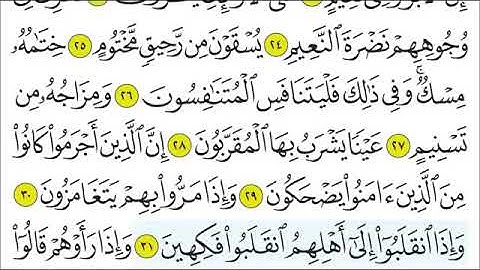 وُجُوهِهِمْ نَضْرَةَ ٱلنَّعِيمِ ٢٤ يُسْقَوْنَ مِن رَّحِيقٍ مَّخْتُومٍ ٢٥ خِتَٰمُهُۥ
مِسْكٌ ۚ وَفِى ذَٰلِكَ فَلْيَتَنَافَسِ ٱلْمُتَنَٰفِسُونَ ٢٦ وَمِزَاجُهُۥ مِن
تَسْنِيمٍ ٢٧ عَيْنًا يَشْرَبُ بِهَا ٱلْمُقَرَّبُونَ ٢٨ إِنَّ ٱلَّذِينَ أَجْرَمُوا۟ كَانُوا۟
مِنَ ٱلَّذِينَ ءَامَنُوا۟ يَضْحَكُونَ ٢٩ وَإِذَا مَرُّوا۟ بِهِمْ يَتَغَامَزُونَ ٣٠
وَإِذَا ٱنقَلَبُوٓا۟ إِلَىٰٓ أَهْلِهِمُ ٱنقَلَبُوا۟ فَكِهِينَ ٣١ وَإِذَا رَأَوْهُمْ قَالُوٓا۟